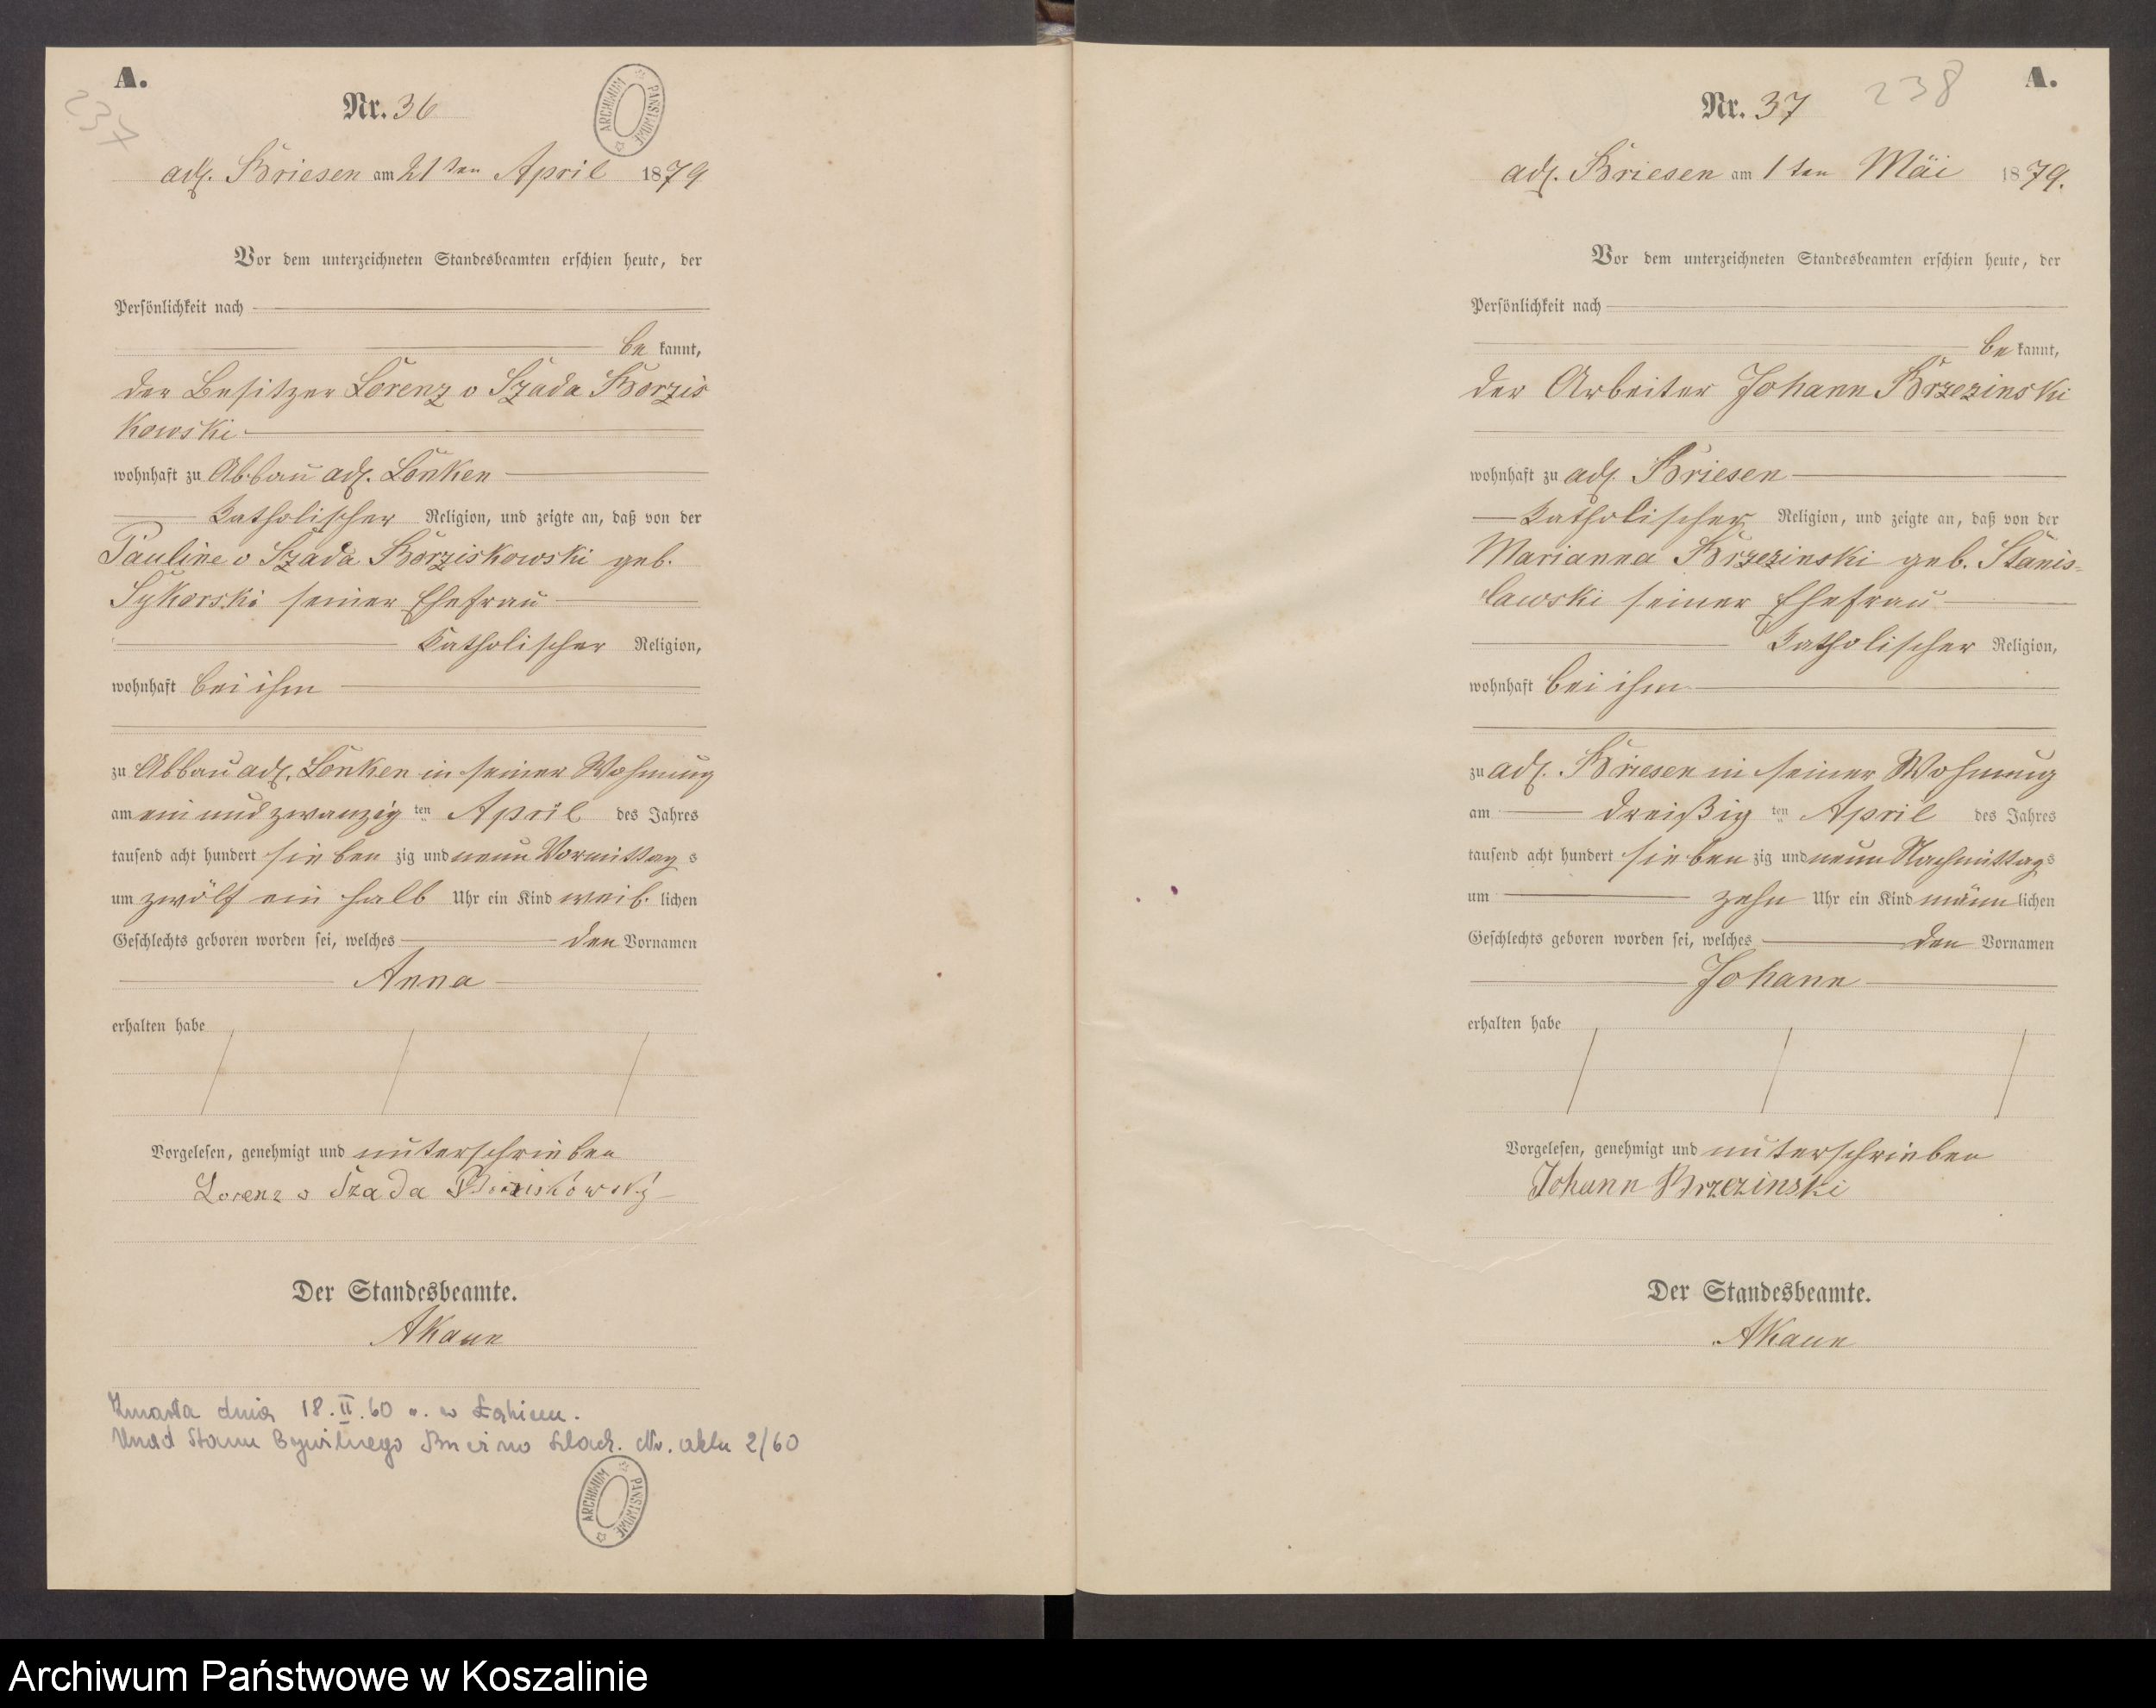 A.
237
Nr. 36
ARCHIWUM PAŃSTWOWE
adl. Briesen am 21 ten April 1879
Vor dem unterzeichneten Standesbeamten erschien heute, der
Persönlichkeit nach
be kannt,
der Besitzer Lorenz v Szada Borzis
kowski
wohnhaft zu Abbau adl. Lonken
Katholischer Religion, und zeigte an, daß von der
Pauline v Szada Borziskowski geb.
Sykorski seiner Ehefrau
Katholischer Religion,
wohnhaft bei ihm
zu Abbau adl. Lonken in seiner Wohnung
am ein und zwanzig ten April des Jahres
tausend acht hundert sieben zig und neun Vormittag s
um zwölf ein halb Uhr ein Kind weib. lichen
Geschlechts geboren worden sei, welches den Vornamen
Anna
erhalten habe
Vorgelesen, genehmigt und unterschrieben
Lorenz v Szada
Der Standesbeamte.
AKaun
Zmarła dnia 18.II.60 r. w
Urząd Stanu Cywilnego Nr. aktu 2/60
ARCHIWUM PAŃSTWOWE
A.
238
Nr. 37
adl. Briesen am 1 ten Mäi 1879.
Vor dem unterzeichneten Standesbeamten erschien heute, der
Persönlichkeit nach
be kannt,
der Arbeiter Johann Brzezinski
wohnhaft zu adl. Briesen
Katholischer Religion, und zeigte an, daß von der
Marianna Brzezinski geb. Stanis-
lawski seiner Ehefrau
Katholischer Religion,
wohnhaft bei ihm
zu adl. Briesen in seiner Wohnung
am dreißig ten April des Jahres
tausend acht hundert sieben zig und neun Nachmittag s
um zehn Uhr ein Kind männ lichen
Geschlechts geboren worden sei, welches den Vornamen
Johann
erhalten habe
Vorgelesen, genehmigt und unterschrieben
Johann Brzezinski
Der Standesbeamte.
AKaun
Archiwum Państwowe w Koszalinie